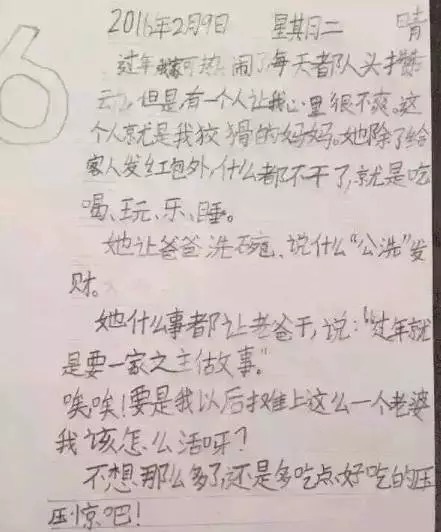 2016年2月9日 星期二 晴
6
过年我家可热闹了每天都人头攒
动,但是有一个人让我心里很不爽。这
个人就是我狡猾的妈妈。她除了给
客人发红包外,什么都不干了,就是吃
喝、玩、乐、睡。
她让爸爸洗碗、说什么“公洗”发
财。
她什么事都让老爸干,说:“过年就
是要一家之主做故事。”
唉唉!要是我以后摊上这么一个老婆
我该怎么活呀?
不想那么多了,还是多吃点好吃的压
压惊吧!